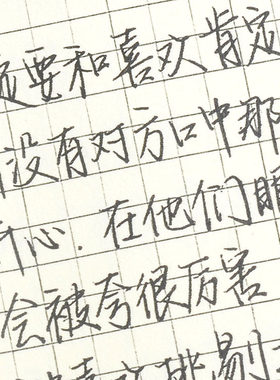 定要和喜欢肯定
没有对方口中那
开心.在他们眼
会被夸很厉害
喜欢挑剔